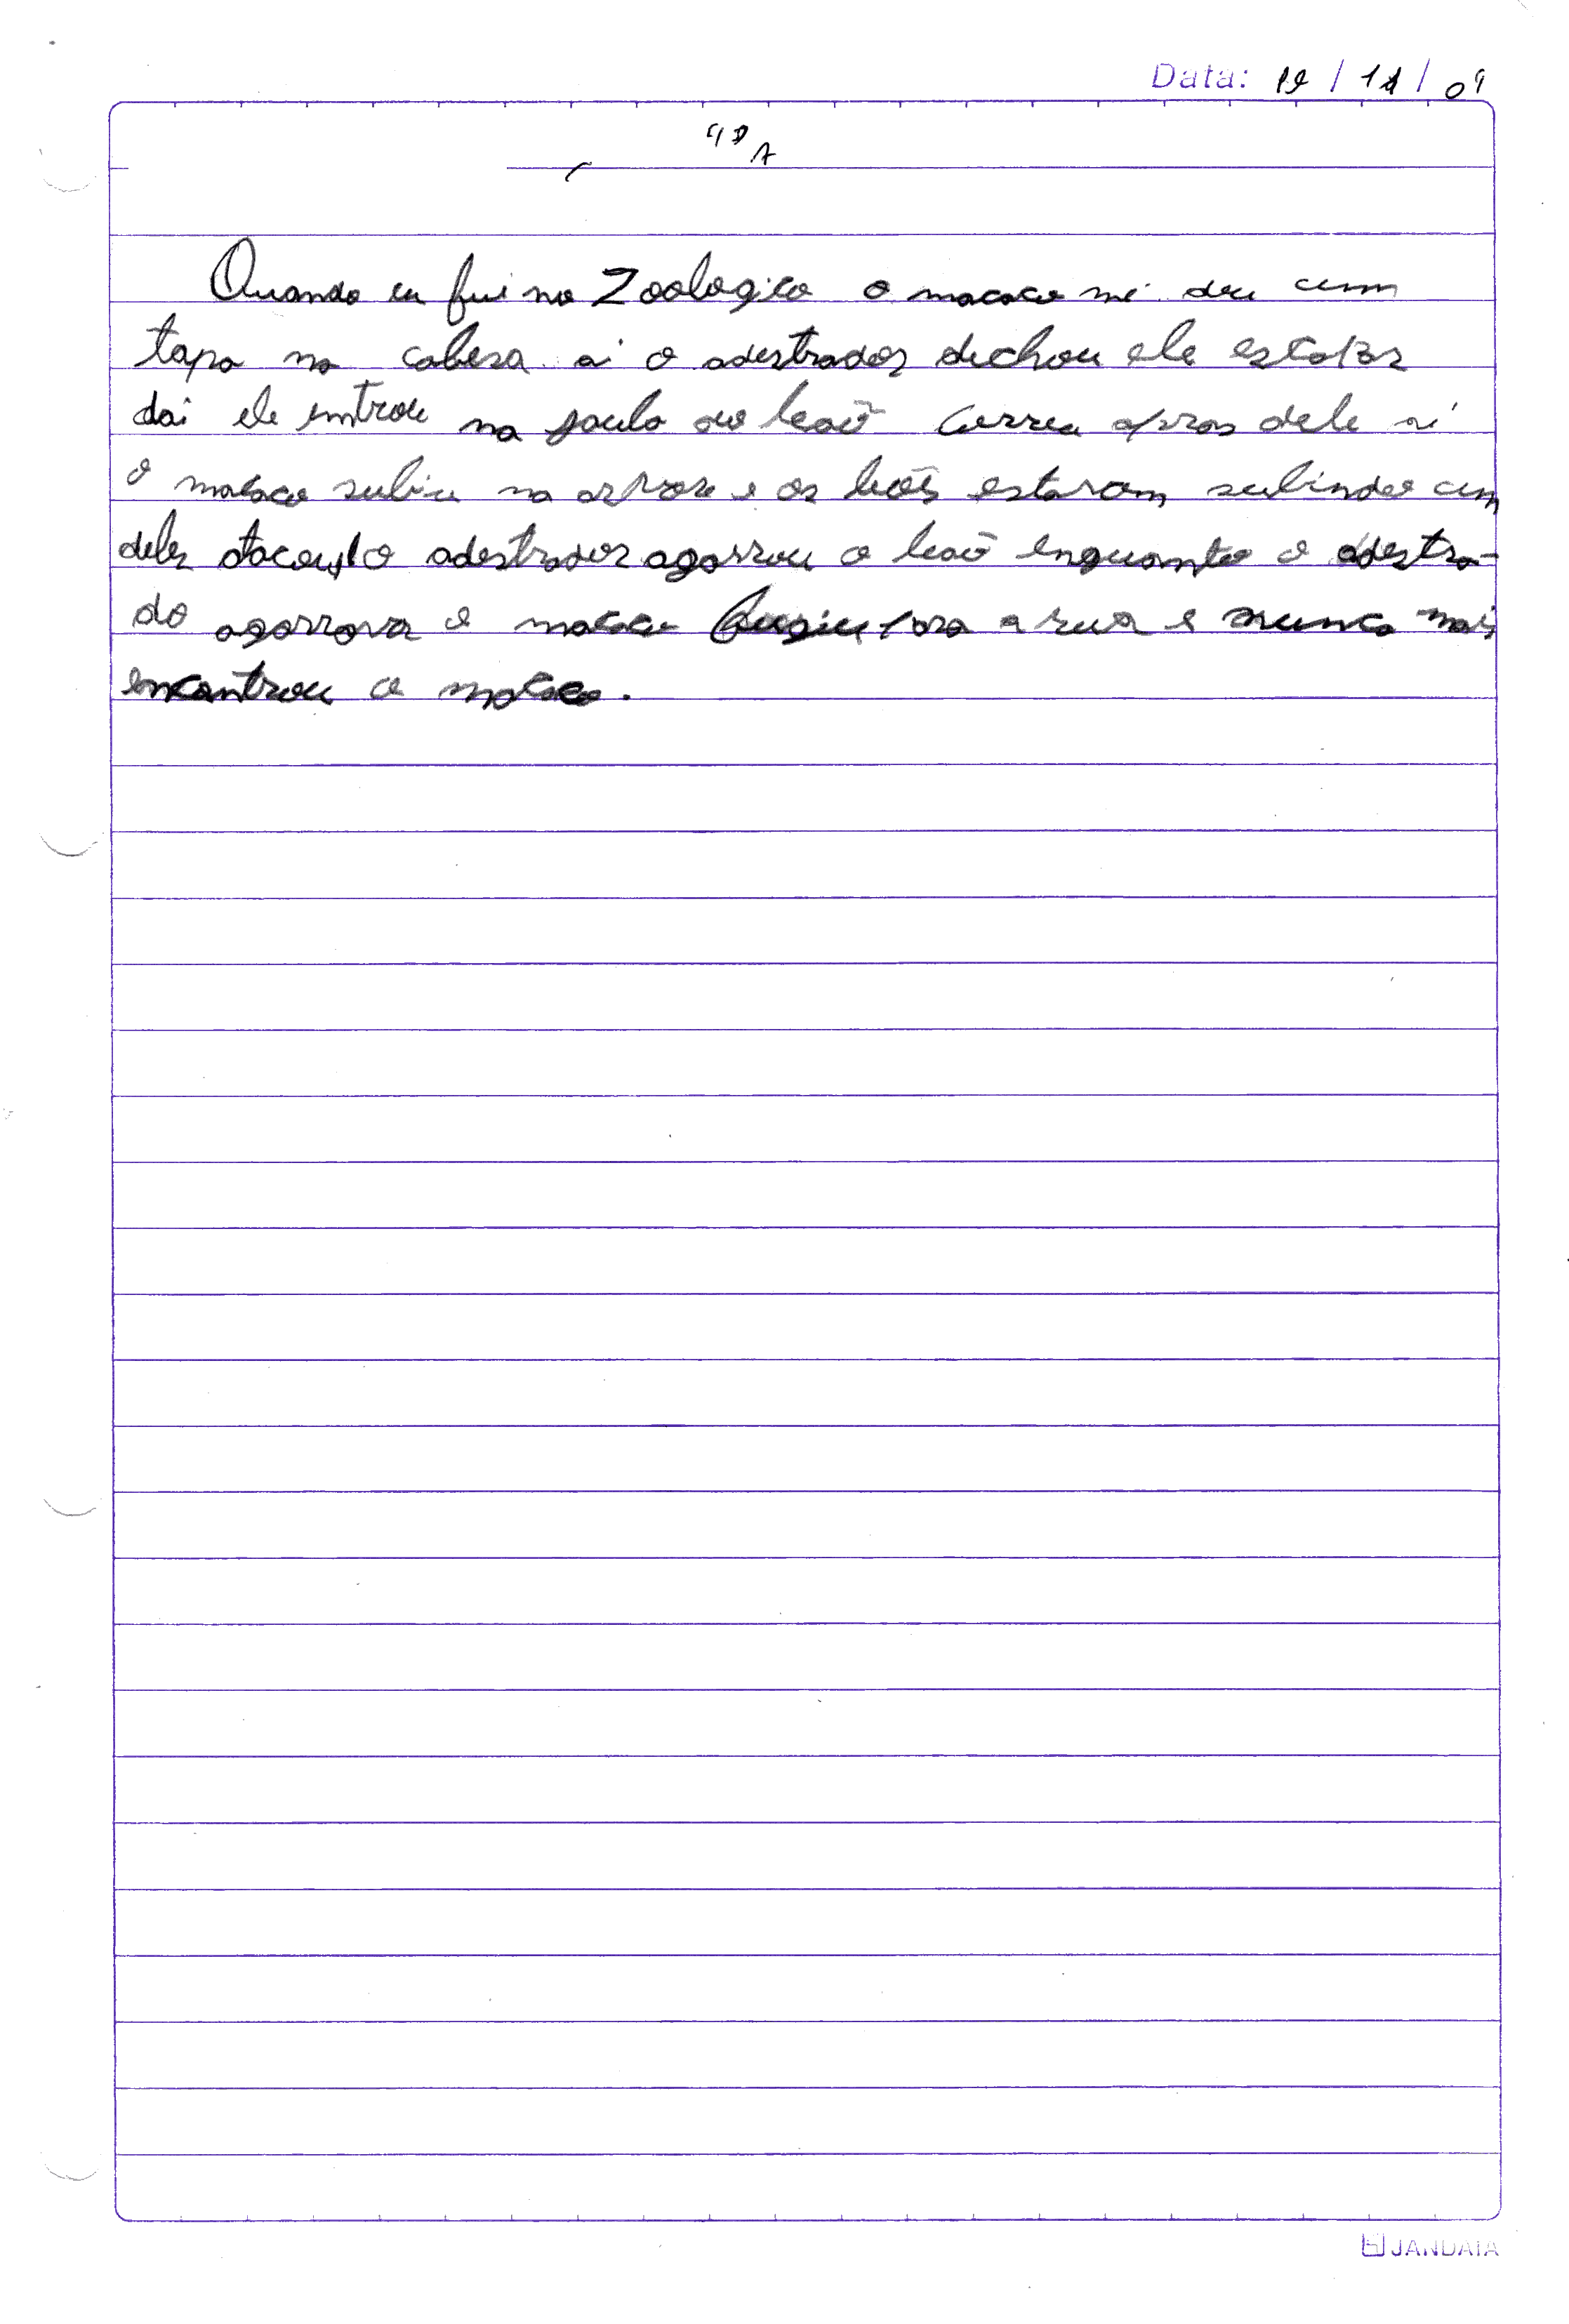 Data: 19 / 11 / 09
4ª A
Quando eu fui no Zoologico o macaco mé deu um
tapa na cabesa aí o adestrador dechou ele escapar
dai ele entrou na jaula do leaõ correu atras dele aí
o macaco subiu na arvore e os leoẽs estavam subindo um
deles atacou o adestrador agarrou o leaõ enquanto o adestra-
do agarrava o macaco fugiu para a rua e nunca mais
encontrou o macaco.
JANDAIA